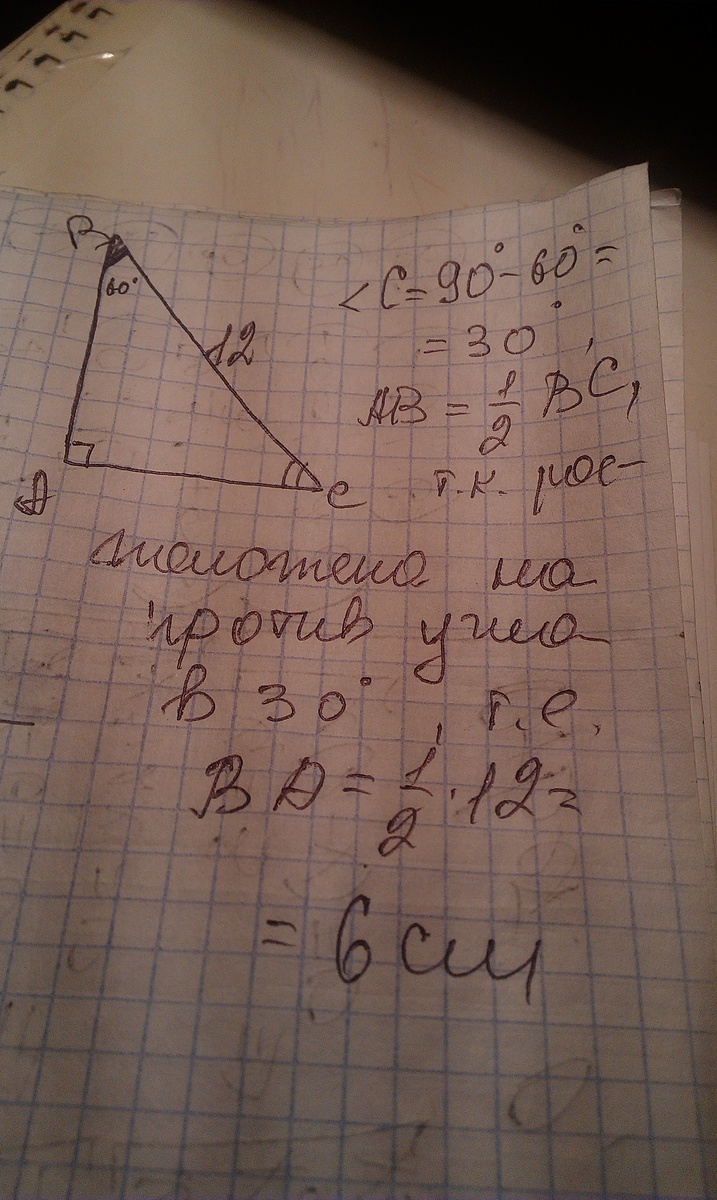 B
60°
12
A
C
<C=90°-60°=
=30°,
AB = 1/2 BC,
т.к. рас-
положена на
против угла
в 30°, т.е.
BA = 1/2 · 12 =
= 6 см